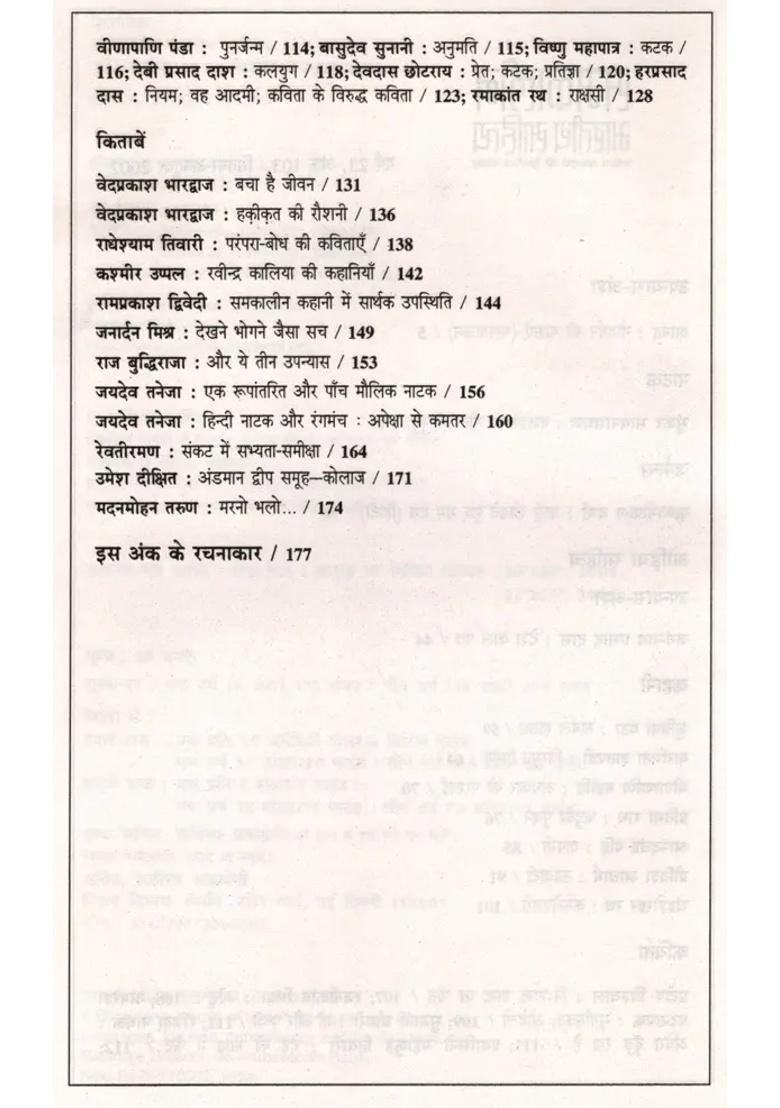 वीणापाणि पंडा : पुनर्जन्म / 114; बासुदेव सुनानी : अनुमति / 115; विष्णु महापात्र : कटक /
116; देबी प्रसाद दाश : कलयुग / 118; देवदास छोटराय : प्रेत; कटक; प्रतिज्ञा / 120; हरप्रसाद
दास : नियम; वह आदमी; कविता के विरुद्ध कविता / 123; रमाकांत रथ : राक्षसी / 128
किताबें
वेदप्रकाश भारद्वाज : बचा है जीवन / 131
वेदप्रकाश भारद्वाज : हक़ीक़त की रौशनी / 136
राधेश्याम तिवारी : परंपरा-बोध की कविताएँ / 138
कश्मीर उप्पल : रवीन्द्र कालिया की कहानियाँ / 142
रामप्रकाश द्विवेदी : समकालीन कहानी में सार्थक उपस्थिति / 144
जनार्दन मिश्र : देखने भोगने जैसा सच / 149
राज बुद्धिराजा : और ये तीन उपन्यास / 153
जयदेव तनेजा : एक रूपांतरित और पाँच मौलिक नाटक / 156
जयदेव तनेजा : हिन्दी नाटक और रंगमंच : अपेक्षा से कमतर / 160
रेवतीरमण : संकट में सभ्यता-समीक्षा / 164
उमेश दीक्षित : अंडमान द्वीप समूह—कोलाज / 171
मदनमोहन तरुण : मरनो भलो... / 174
इस अंक के रचनाकार / 177